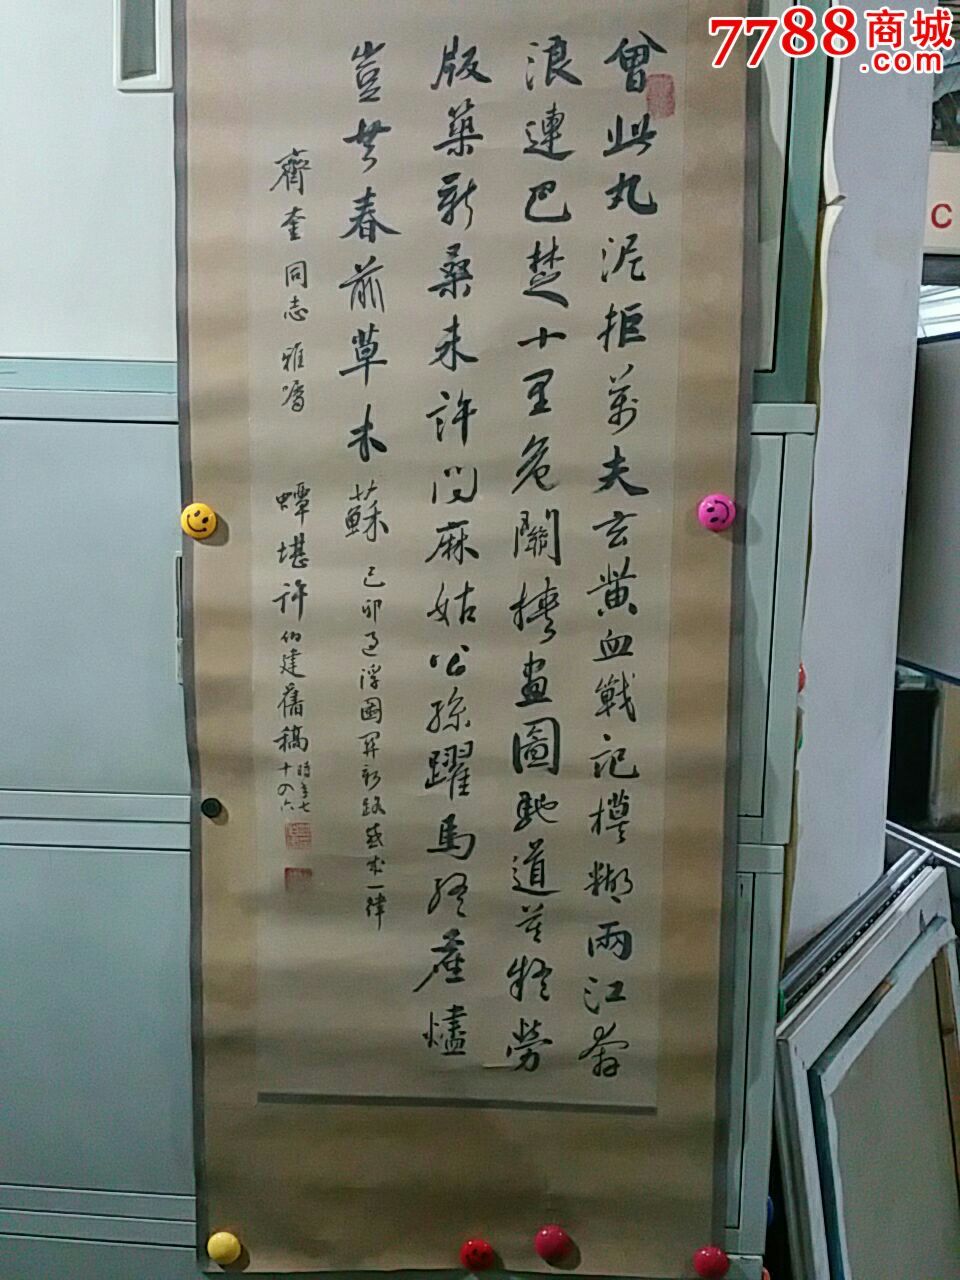 7788商城
.com
曾此丸泥拒萬夫玄黃血戰記模糊兩江奔
浪連巴楚十里危關畫圖馳道勞
版築新桑未許問麻姑公孫躍馬終燼
豈共春前草木蘇 己卯過浮圖關新路感成一律
齊奎同志雅囑 蟫堪許伯建舊稿
時年七
十六
C